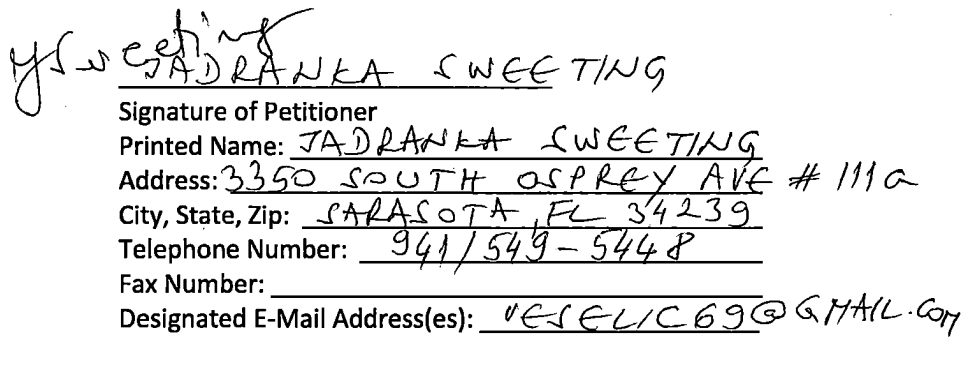 JSweeting
JADRANKA SWEETING
Signature of Petitioner
Printed Name: JADRANKA SWEETING
Address: 3350 SOUTH OSPREY AVE # 111a
City, State, Zip: SARASOTA, FL 34239
Telephone Number: 941/549-5448
Fax Number:
Designated E-Mail Address(es): VESELIC69@GMAIL.COM